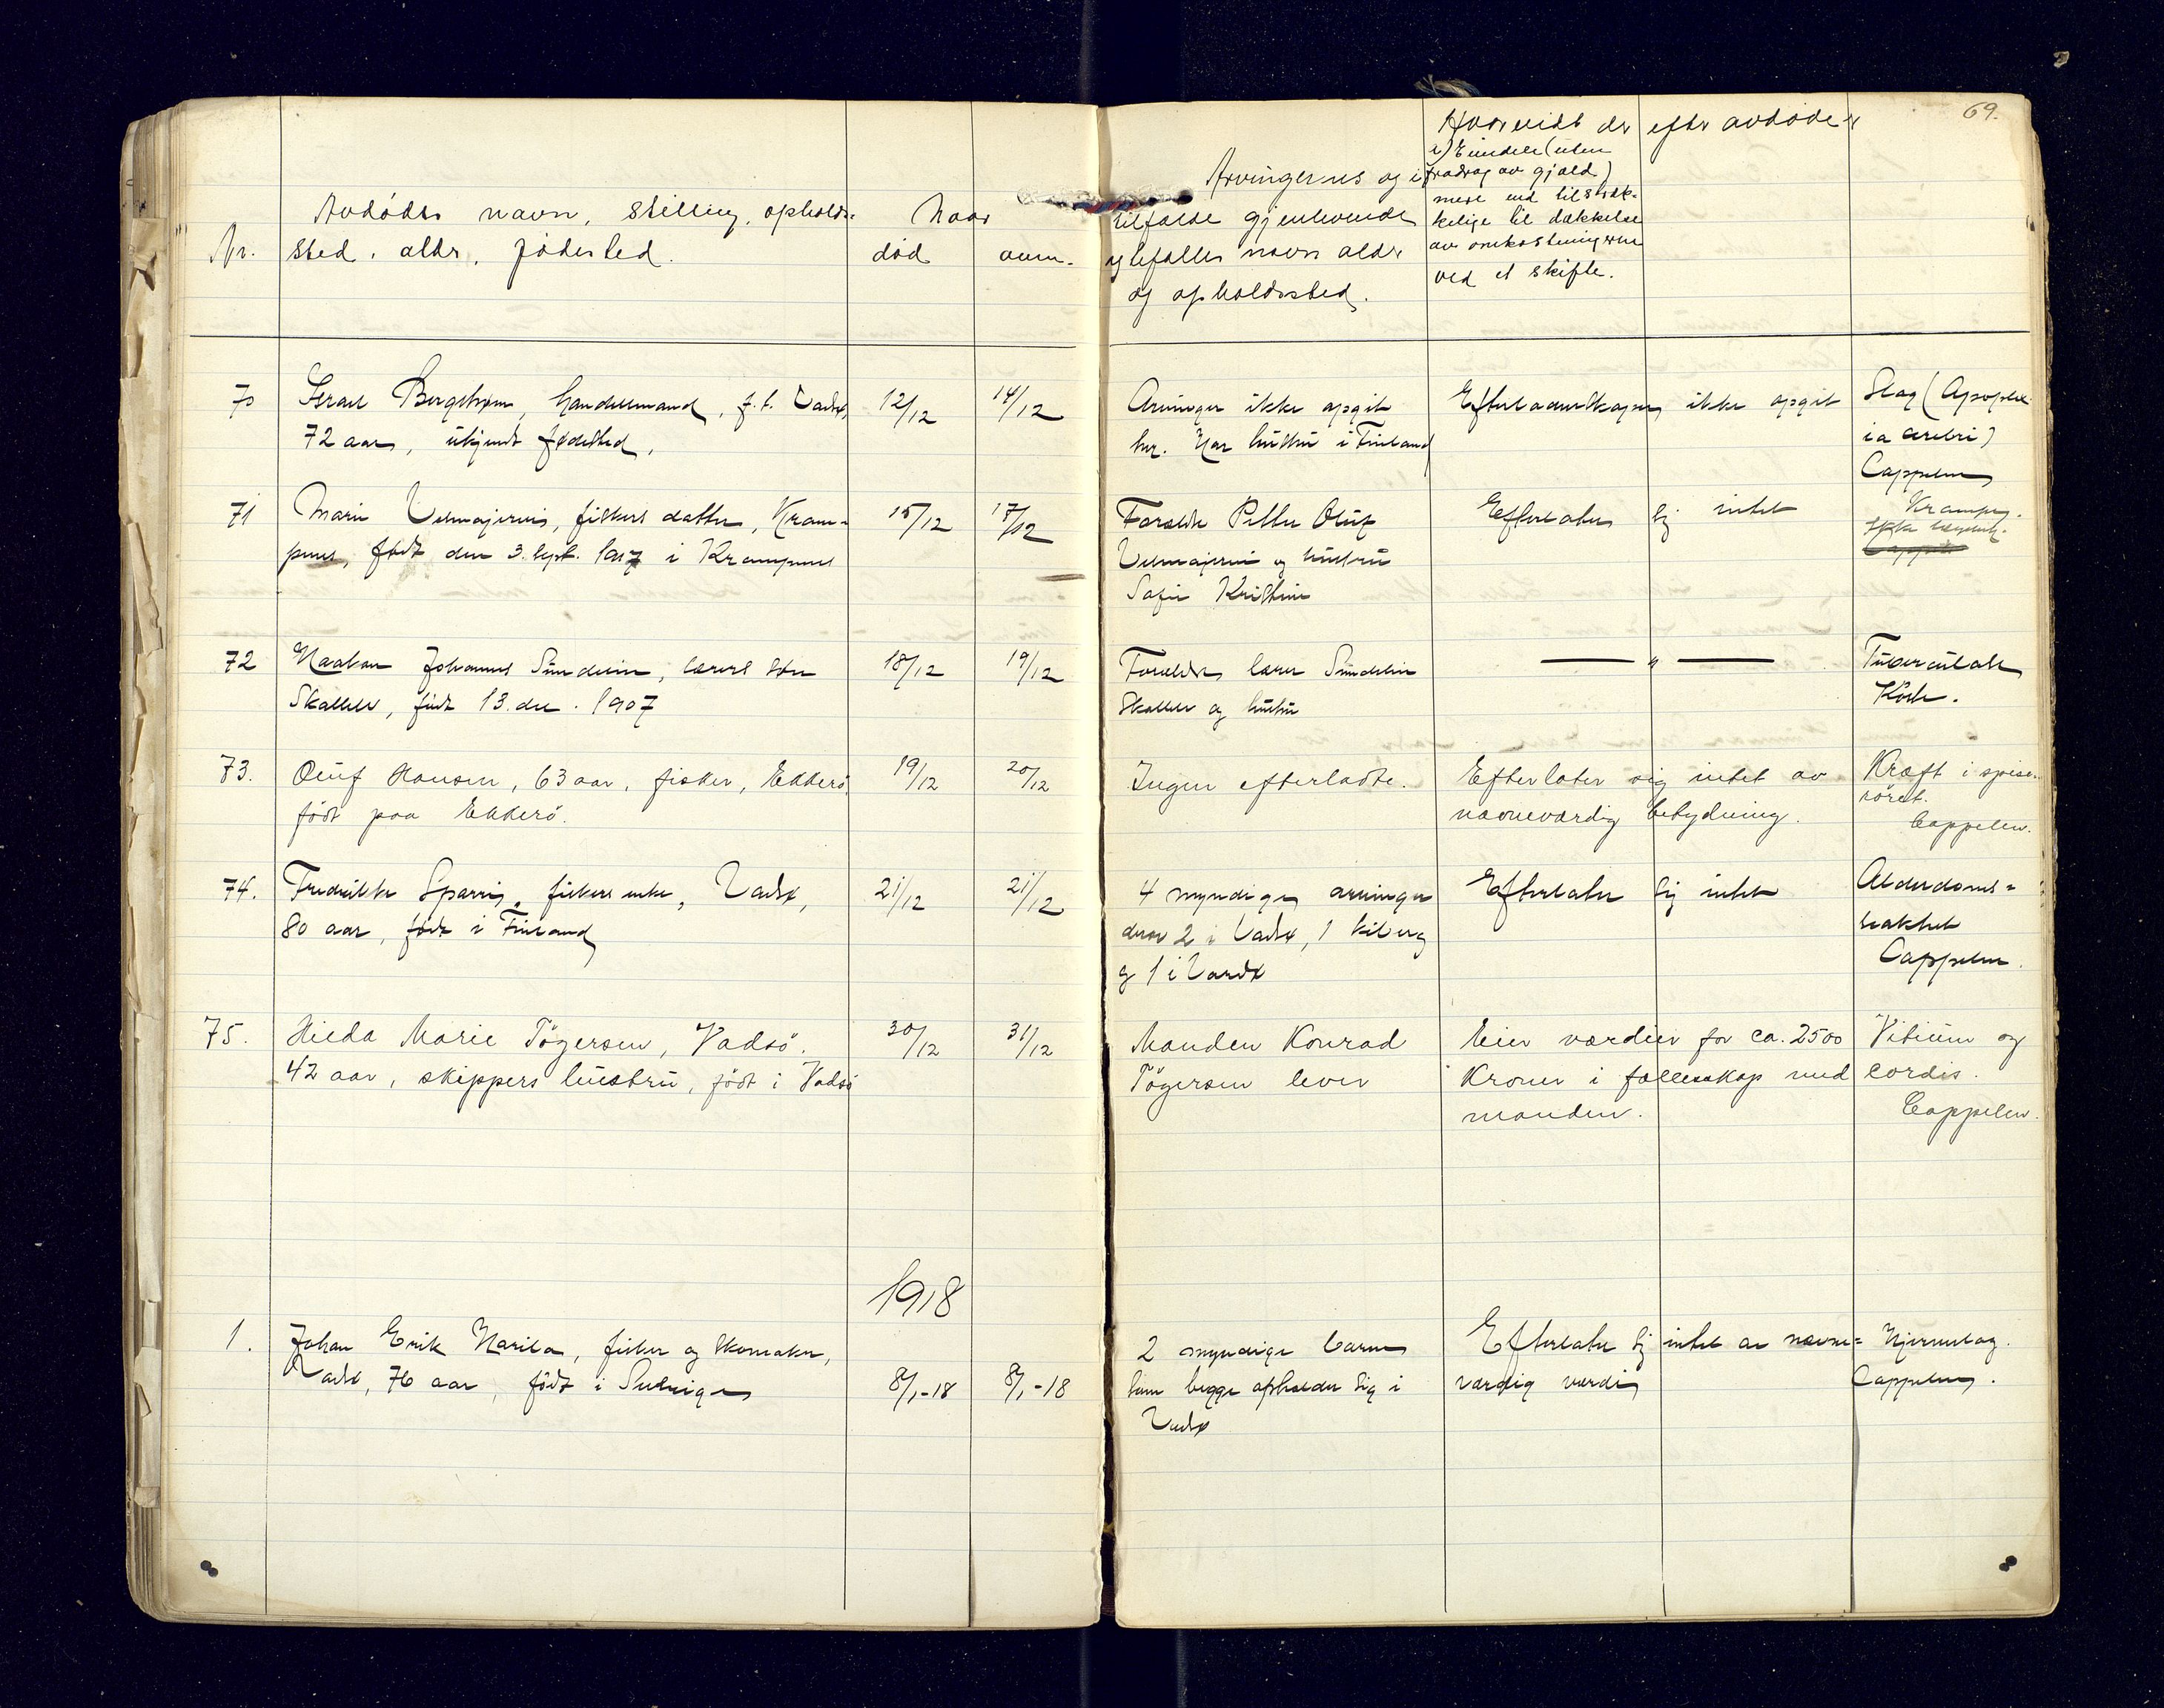 69.
Nr.
Avdødes navn, stilling, opholds-
sted, alder, fødested.
Naar
død
anm.
Arvingernes og i
tilfælde gjenlevende
egtefælles navn alder
og opholdssted.
Hvorvidt der efter avdøde er
1) Eiendele (uten
fradrag av gjæld)
mere end tilstræk-
kelige til dækkelse
av omkostningerne
ved et skifte.
70
Israel Bergstrøm, handelsmand, f.t. Vadsø,
72 aar, ukjendt fødested.
12/12
14/12
Arvinger ikke opgit
her. Har hustru i Finland
Efterladenskaper ikke opgit
Slag (Apoplex-
ia cerebri)
Cappelen
71
Marie, fiskers datter, Kram-
penes, født den 3. sept. 1917 i Krampenes
15/12
17/12
Foreldre Petter Oluf
og hustru
Sofie Kristine
Efterlater sig intet
Krampe.
72
Haakon Johannes Sundelin, lærers søn
Skallelv, født 13. des. 1907
18/12
19/12
Foreldre lærer Sundelin
Skallelv og hustru
— " —
Tuberculose
73.
Oluf Hansen, 63 aar, fisker, Ekkerö,
född paa Ekkerö.
19/12
20/12
Ingen efterladte.
Efterlater sig intet av
nævneværdig betydning.
Kræft i spise-
röret.
Cappelen.
74.
Fredrikke Sparri, fiskers enke, Vadsø,
80 aar, født i Finland
21/12
21/12
4 myndige arvinger
derav 2 i Vadsø, 1 Kiberg
og 1 i Vardø
Efterlater sig intet
Alderdoms-
svakhet
Cappelen.
75.
Hilda Marie Tögersen, Vadsö.
42 aar, skippers hustru, född i Vadsö
30/12
31/12
Manden Konrad
Tögersen lever
Eier værdier for ca. 2500
Kroner i fællesskap med
manden.
Vitium og
cordis.
Cappelen.
1918
1.
Johan Erik Harila, fisker og skomaker,
Vadsø, 76 aar, född i Sverige
8/1-18
8/1-18
2 myndige barn
som begge opholder sig i
Vadsø
Efterlater sig intet av nævne-
værdig værdi
Hjerneslag.
Cappelen.